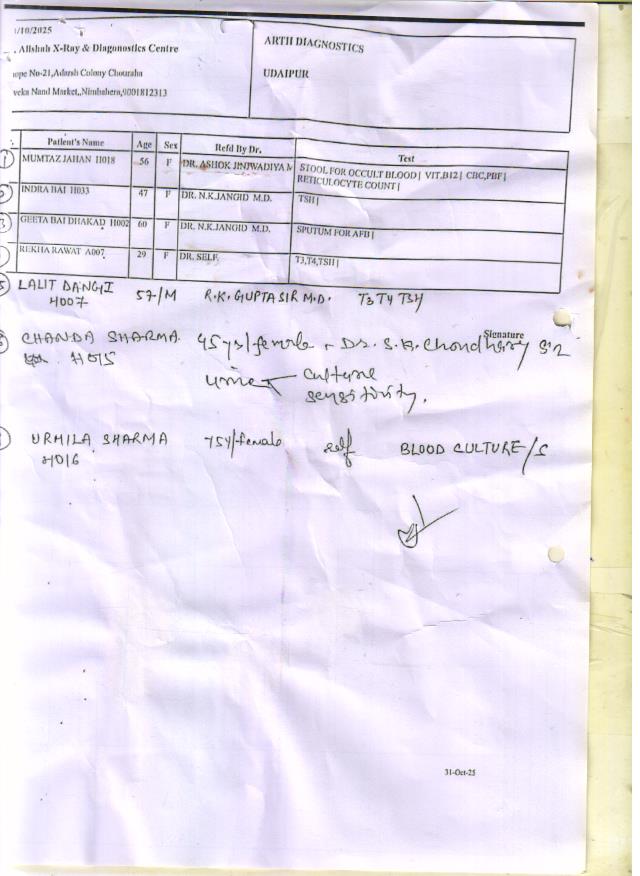 1/10/2025
, Allshah X-Ray & Diagonostics Centre
ope No-21,Adarsh Colony Chouraha
veka Nand Market,,Nimbahera,9001812313
ARTH DIAGNOSTICS
UDAIPUR
Patient's Name Age Sex Refd By Dr. Test
MUMTAZ JAHAN H018 56 F DR. ASHOK JINJWADIYA M STOOL FOR OCCULT BLOOD | VIT,B12 | CBC,PBF |
RETICULOCYTE COUNT |
INDRA BAI H033 47 F DR. N.K.JANGID M.D. TSH |
GEETA BAI DHAKAD H002 60 F DR. N.K.JANGID M.D. SPUTUM FOR AFB |
REKHA RAWAT A007 29 F DR. SELF T3,T4,TSH |
LALIT DANGI 57/M R.K. GUPTA SIR M.D. T3 T4 TSH
H007
Signature
CHANDA SHARMA 45 ys/female Dr. S.B. Choudhary
H015
urine culture
sensitivity.
URMILA SHARMA 75Y/female self BLOOD CULTURE/S
H016
31-Oct-25